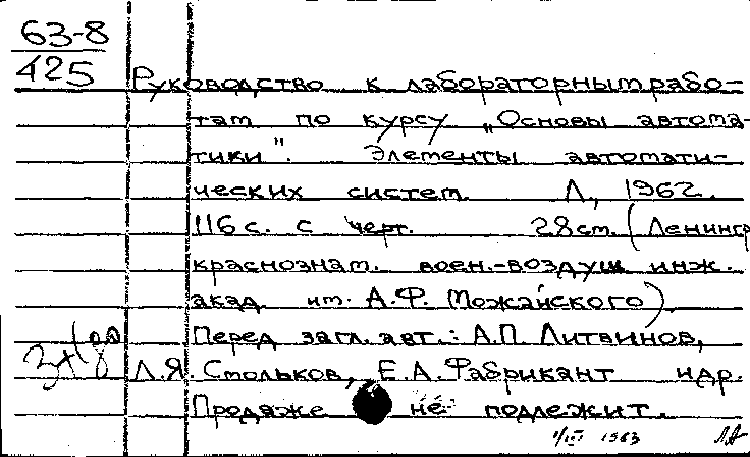 63-8
425
Руководство к лабораторным рабо-
там по курсу „Основы автома-
тики". Элементы автомати-
ческих систем. Л., 1962.
116 с. с черт. 28 см. (Ленингр
краснознам. воен.-воздуш инж.
акад. им. А.Ф. Можайского).
Перед загл. авт.: А.П. Литвинов,
Л.Я. Стольков, Е.А. Фабрикант и др.
Продаже не подлежит.
1/III 1963